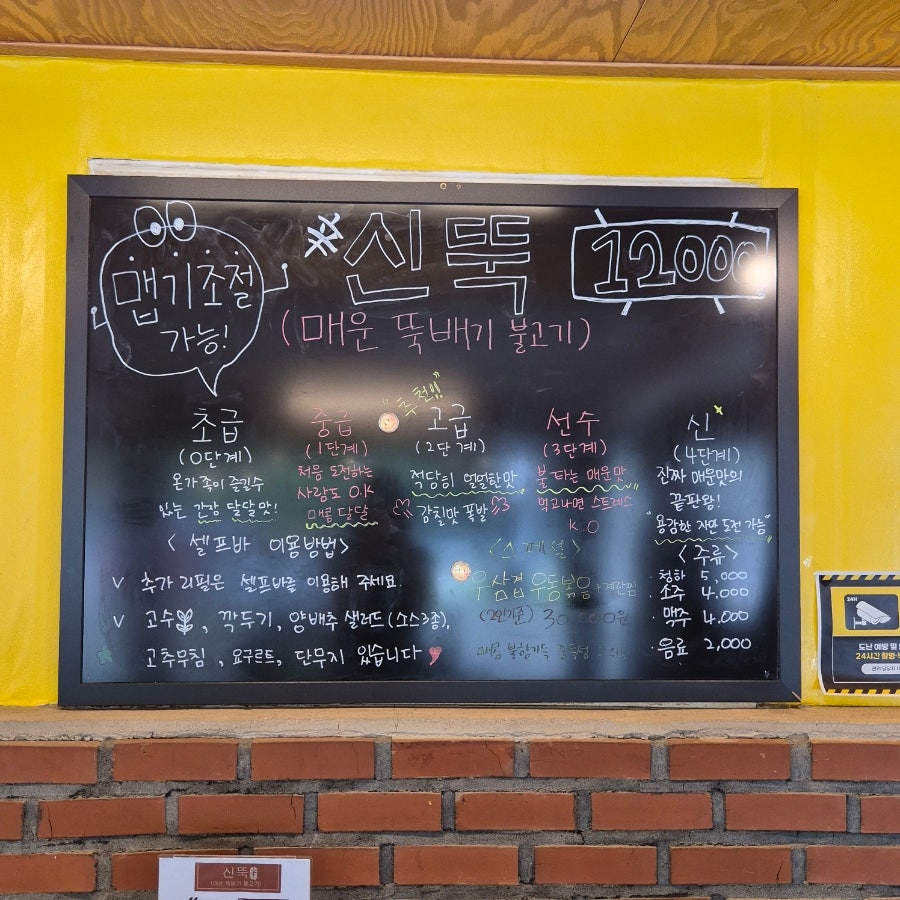 맵기조절
가능!
신뚝
12000
(매운 뚝배기 불고기)
초급
(0단계)
온가족이 즐길수
있는 간장 달달맛!
중급
(1단계)
처음 도전하는
사람도 O.K
매콤달달
"추천!!"
고급
(2단계)
적당히 얼얼한맛
감칠맛 폭발
선수
(3단계)
불타는 매운맛
먹고나면 스트레스
K.O
신
(4단계)
진짜 매운맛의
끝판왕!
"용감한 자만 도전 가능"
<셀프바 이용방법>
V 추가 리필은 셀프바를 이용해 주세요.
V 고수, 깍두기, 양배추 샐러드(소스3종),
고추무침, 요구르트, 단무지 있습니다
<스페셜>
우삼겹 우동볶음+계란찜
(2인기준) 30,000원
매콤 불향가득 중독성
<주류>
·청하 5,000
·소주 4,000
·맥주 4,000
·음료 2,000
24H
도난 예방 및
24시간 촬영
신뚝